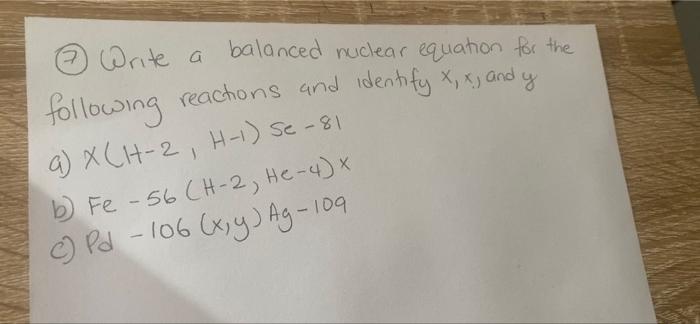 ⑦ Write a balanced nuclear equation for the
following reactions and identify x, x, and y
a) X(H-2, H-1) Se-81
b) Fe-56 (H-2, He-4) x
c) Pd-106 (x,y) Ag-109